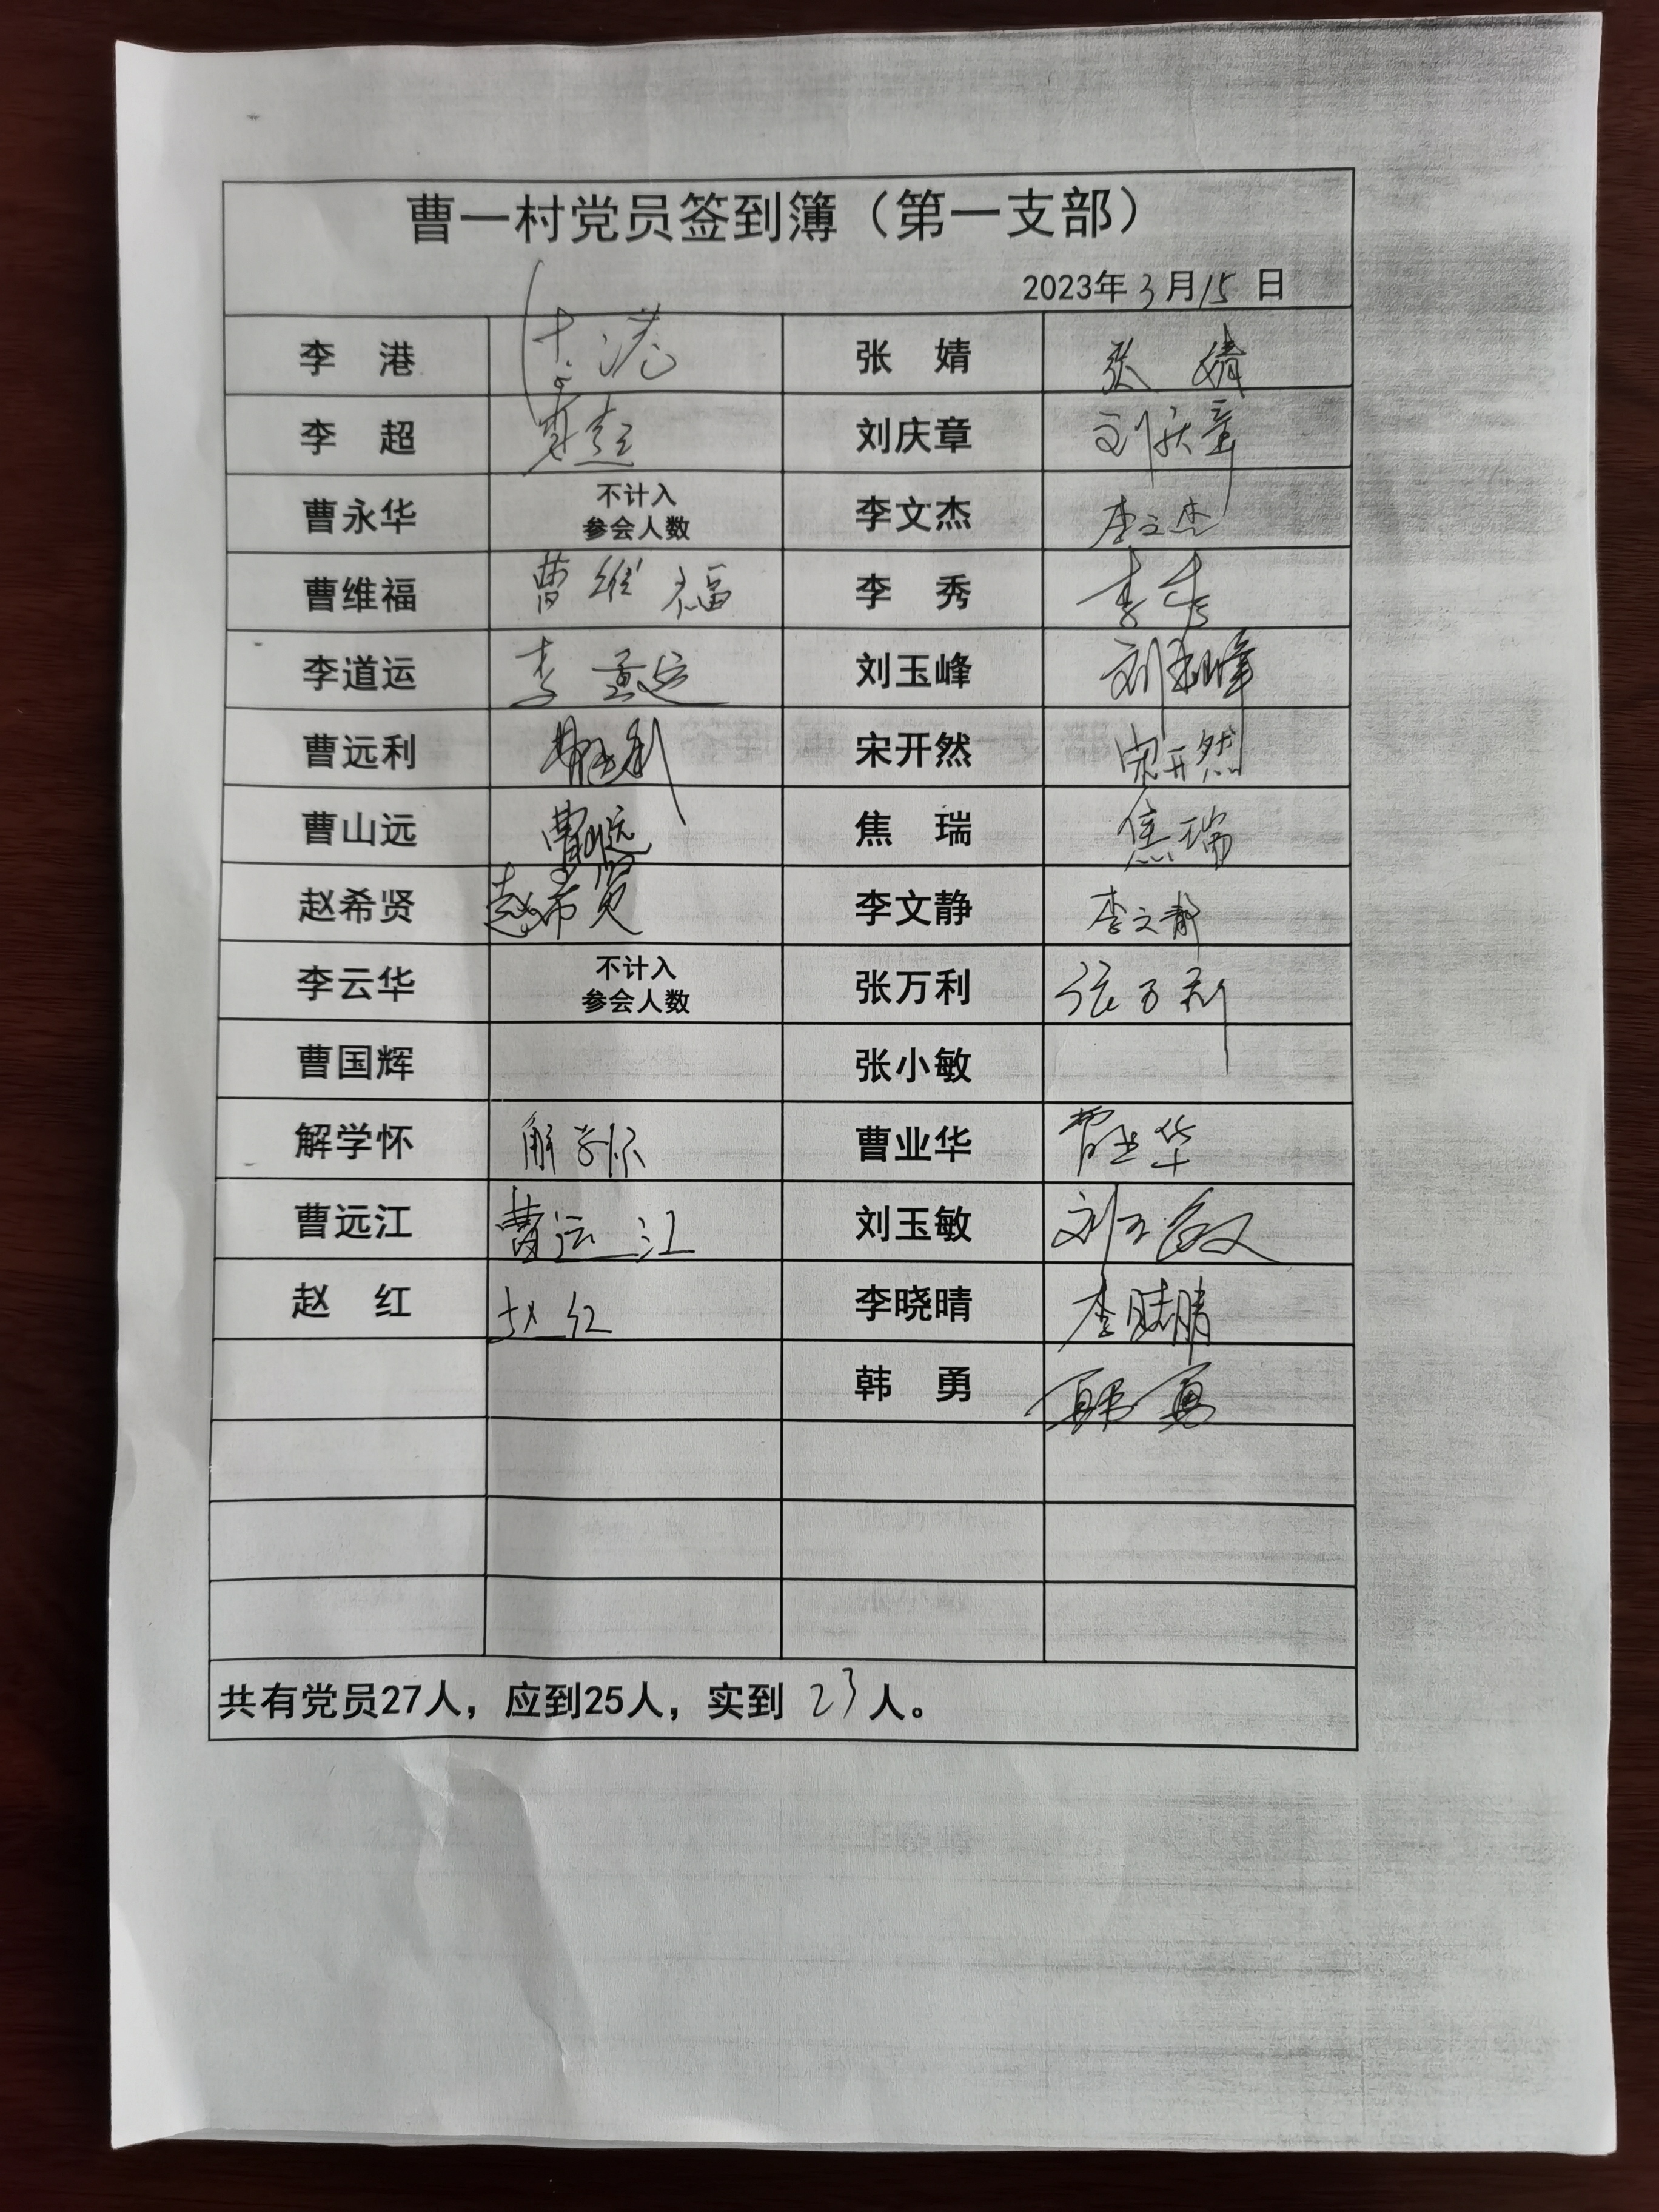 曹一村党员签到簿（第一支部）
2023年3月15日
李 港 李港 张 婧 张婧
李 超 李超 刘庆章 刘庆章
曹永华 不计入 李文杰 李文杰
参会人数
曹维福 曹维福 李 秀 李秀
李道运 李道运 刘玉峰 刘玉峰
曹远利 曹远利 宋开然 宋开然
曹山远 曹山远 焦 瑞 焦瑞
赵希贤 赵希贤 李文静 李文静
李云华 不计入 张万利 张万利
参会人数
曹国辉 张小敏
解学怀 解学怀 曹业华 曹业华
曹远江 曹远江 刘玉敏 刘玉敏
赵 红 赵红 李晓晴 李晓晴
韩 勇 韩勇
共有党员27人，应到25人，实到 23 人。